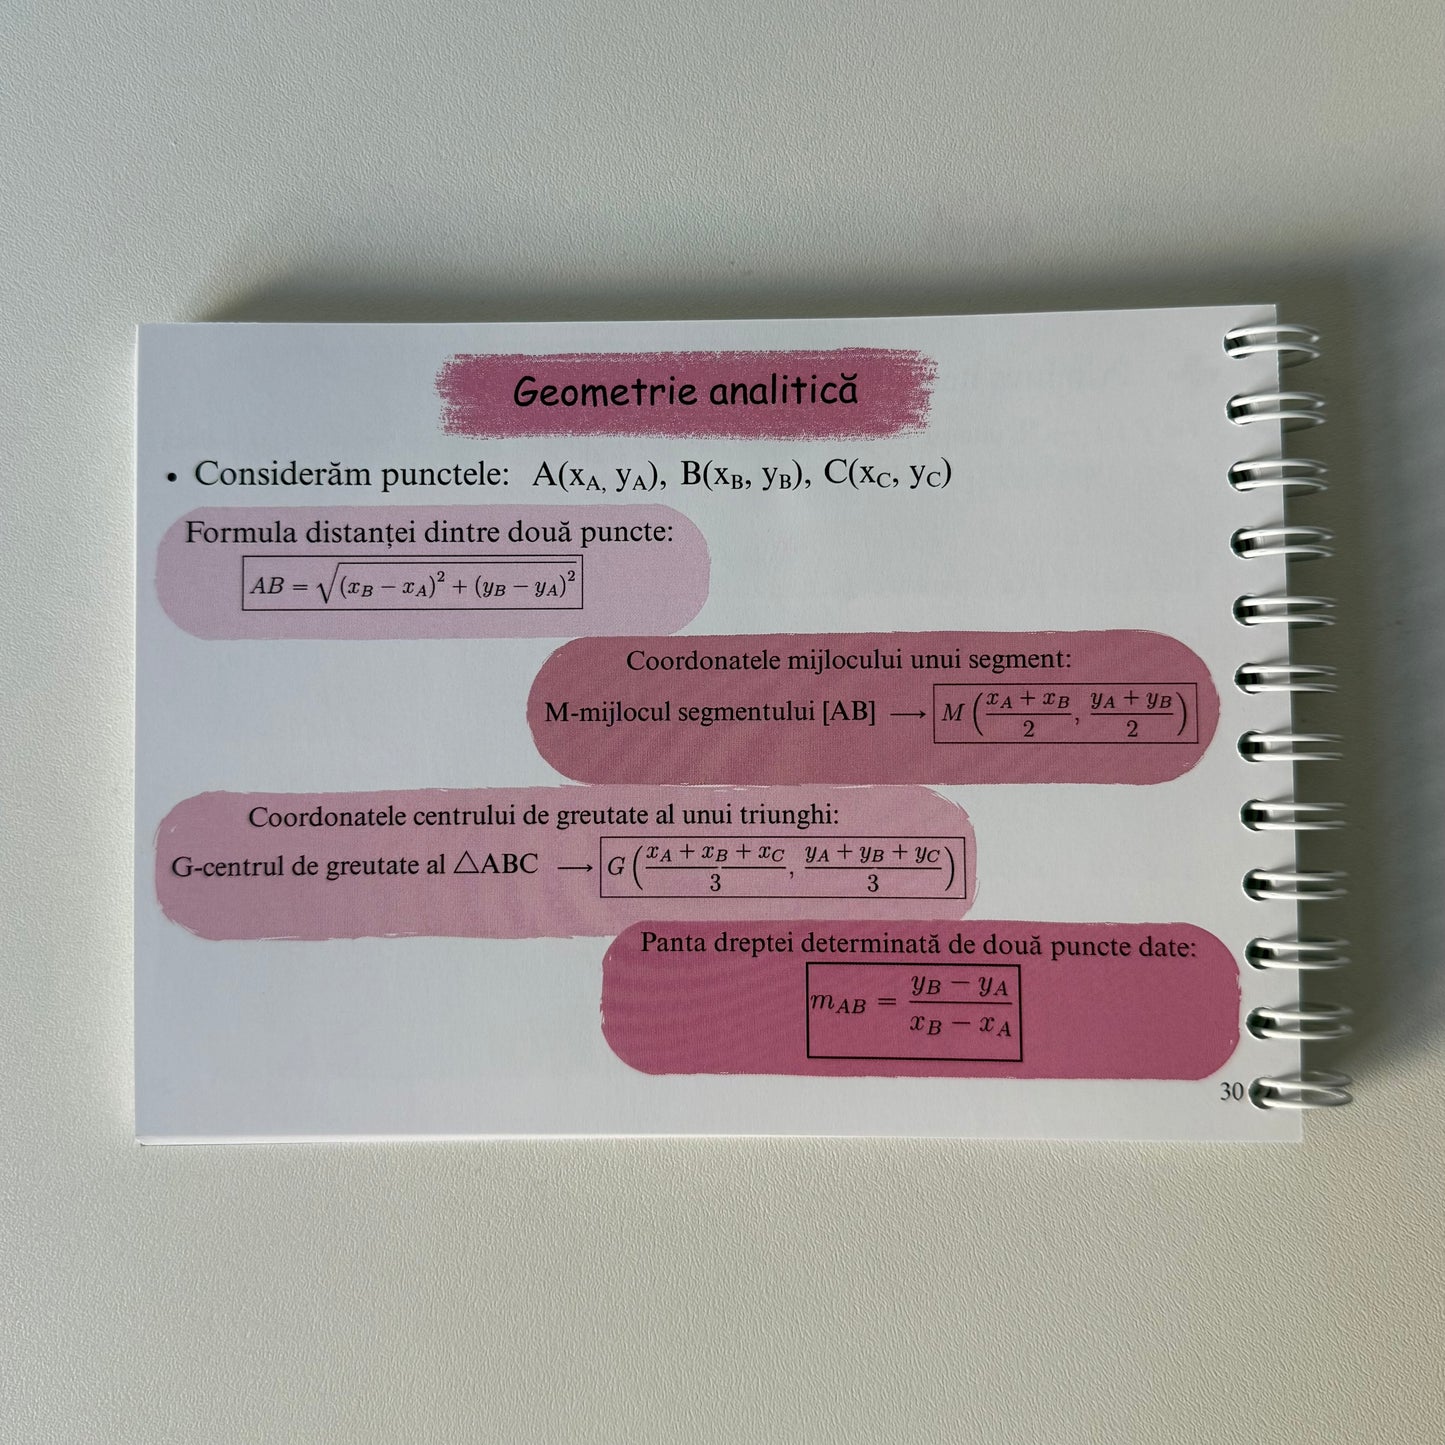 Geometrie analitică
• Considerăm punctele: A(x_A, y_A), B(x_B, y_B), C(x_C, y_C)
Formula distanței dintre două puncte:
AB = √((x_B − x_A)² + (y_B − y_A)²)
Coordonatele mijlocului unui segment:
M-mijlocul segmentului [AB] ⟶ M((x_A + x_B)/2, (y_A + y_B)/2)
Coordonatele centrului de greutate al unui triunghi:
G-centrul de greutate al △ABC ⟶ G((x_A + x_B + x_C)/3, (y_A + y_B + y_C)/3)
Panta dreptei determinată de două puncte date:
m_AB = (y_B − y_A)/(x_B − x_A)
30